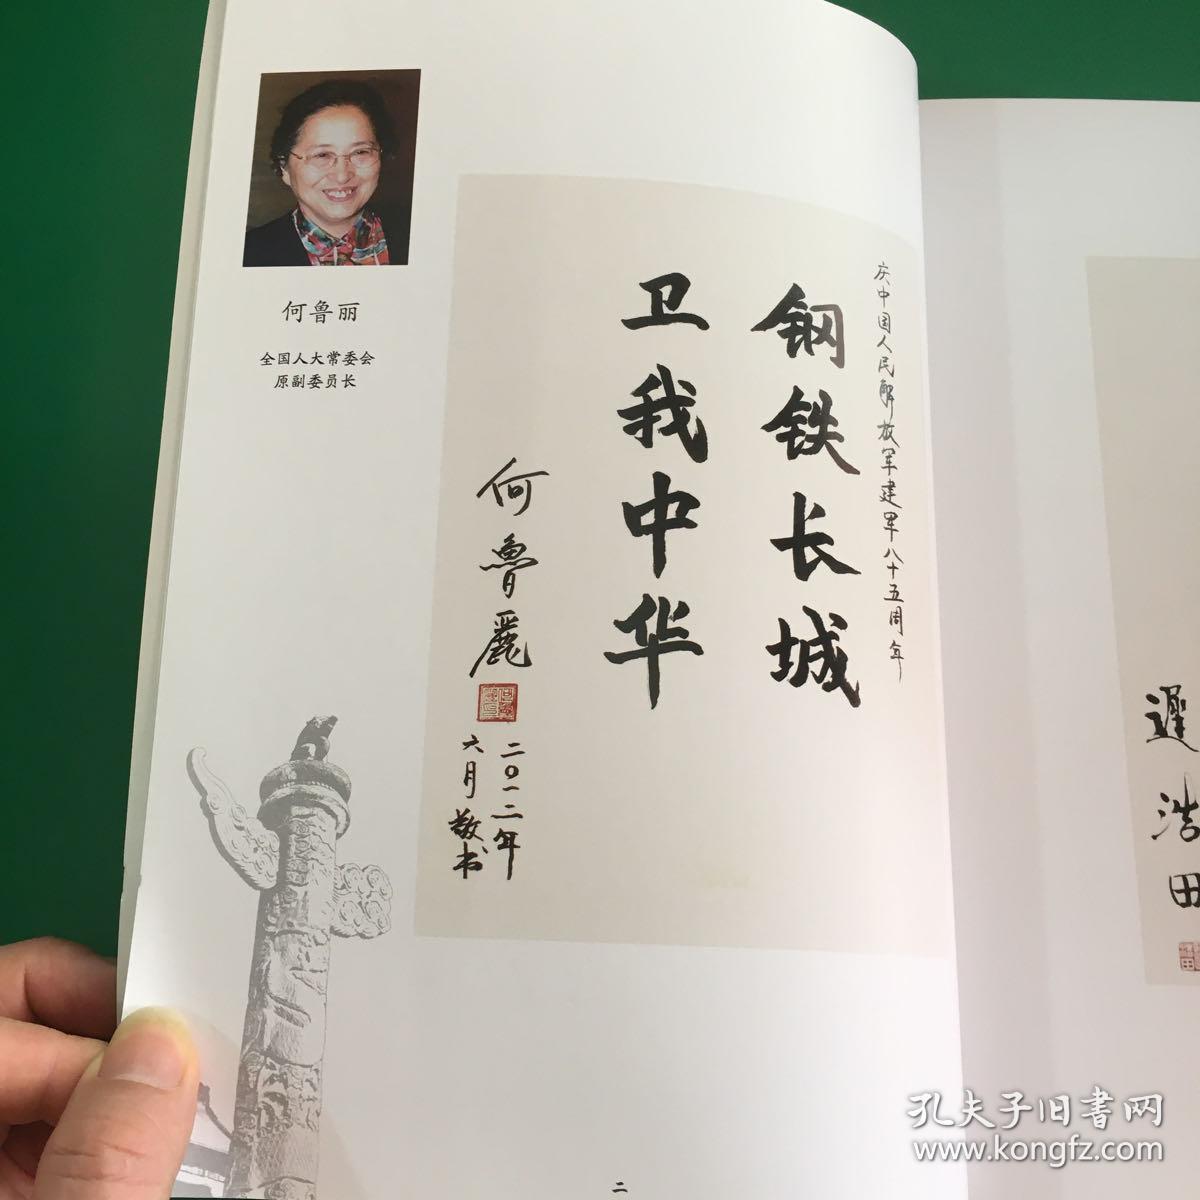 何鲁丽
全国人大常委会
原副委员长
庆中国人民解放军建军八十五周年
钢铁长城
卫我中华
何魯麗
二〇一二年
六月敬书
二
遲浩田
孔夫子旧书网
www.kongfz.com